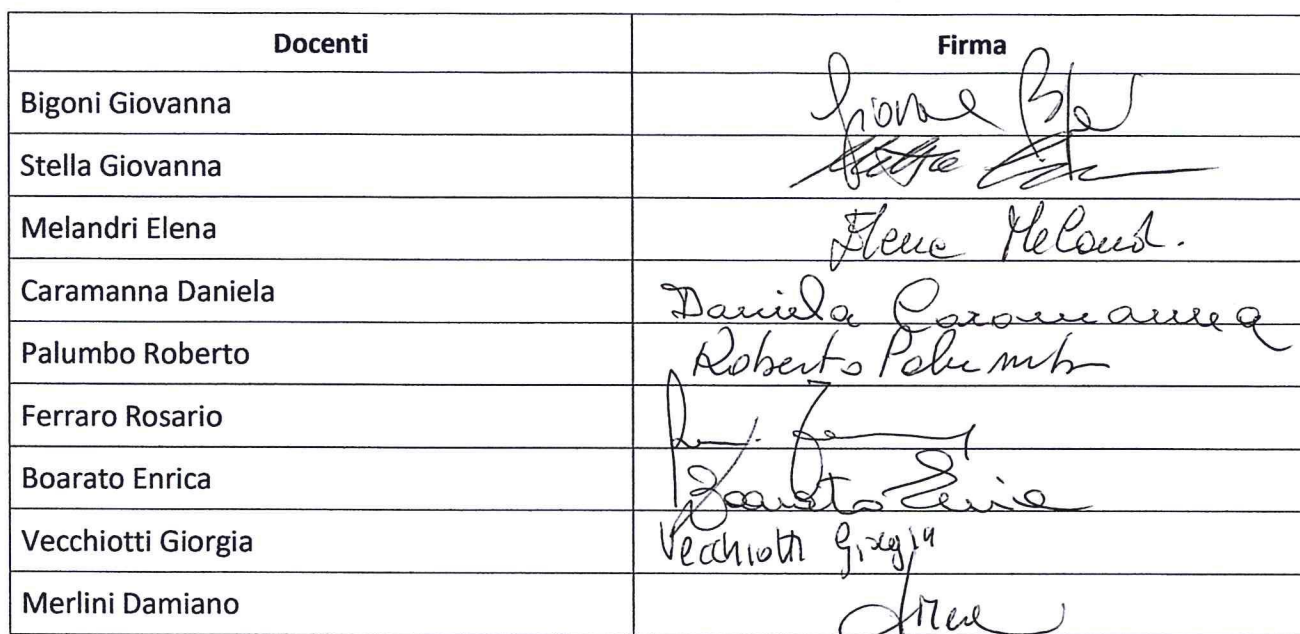 Docenti Firma
Bigoni Giovanna
Stella Giovanna
Melandri Elena Elena
Caramanna Daniela Daniela Caramanna
Palumbo Roberto Roberto Palumbo
Ferraro Rosario
Boarato Enrica Boarato
Vecchiotti Giorgia Vecchiotti Giorgia
Merlini Damiano